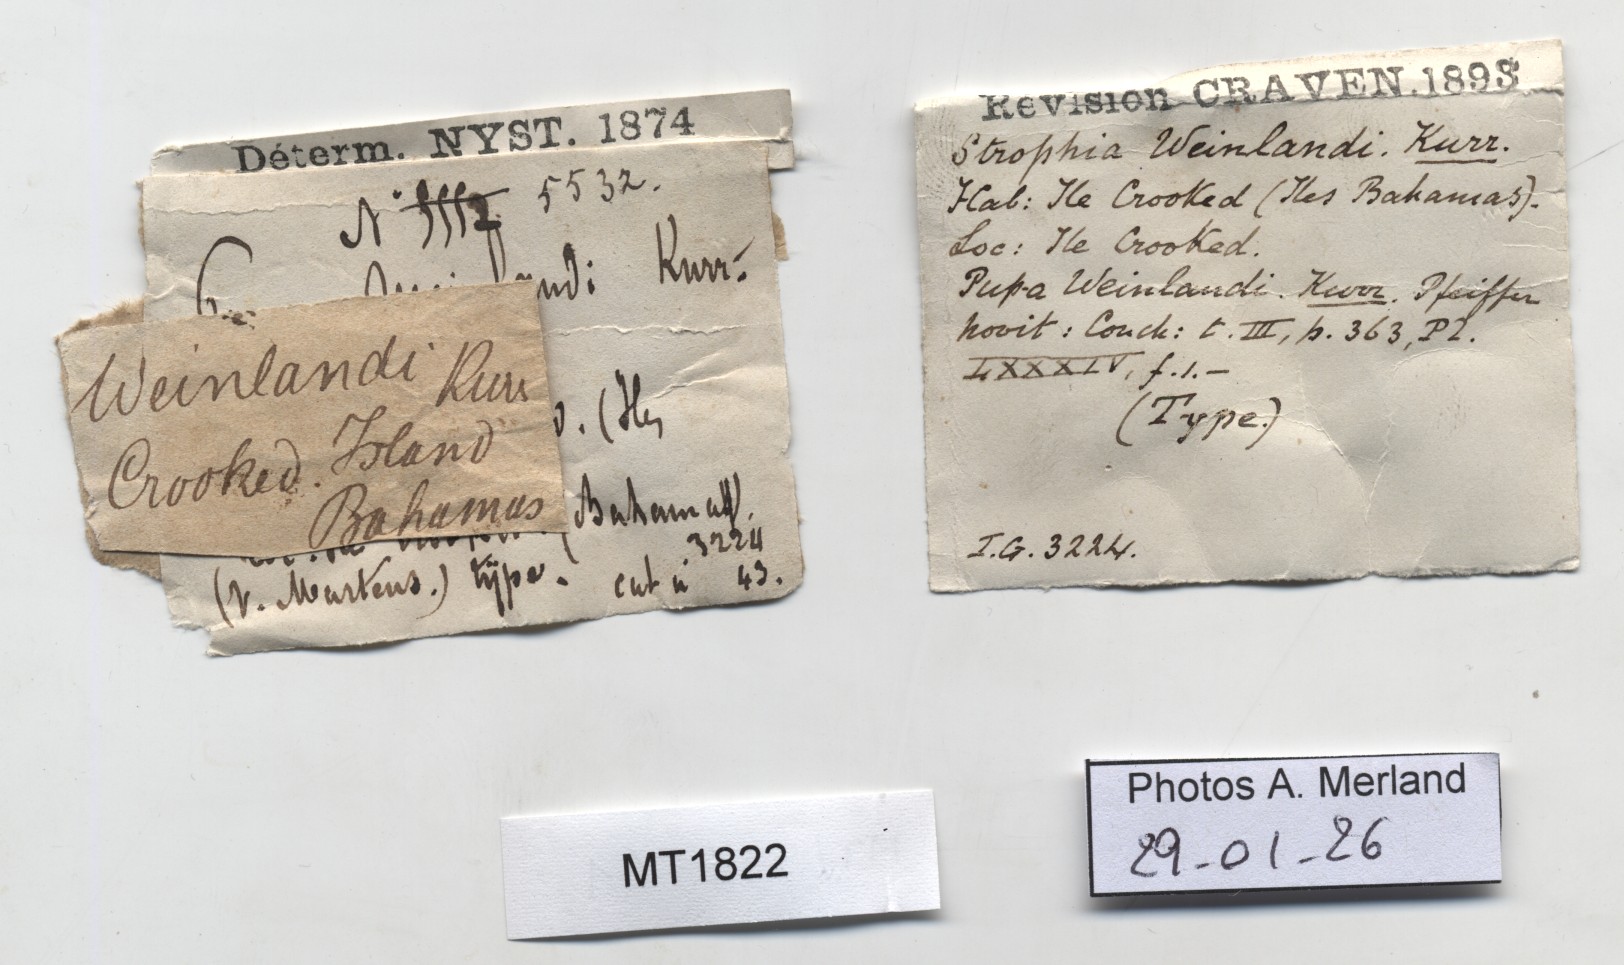 Déterm. NYST. 1874
N° 5552 5532.
Kurr.
Weinlandi Kurr
Crooked. Island
Bahamas
(Iles
Bahamas).
(v. Martens.) type. 3224
cat à 43.
Revision CRAVEN.1893
Strophia Weinlandi. Kurr.
Hab: Ile Crooked (Iles Bahamas).
Loc: Ile Crooked.
Pupa Weinlandi. Kurr. Pfeiffer
novit: Conch: t. III, p. 363, Pl.
LXXXIV, f.1.—
(Type.)
I.G. 3224.
MT1822
Photos A. Merland
29-01-26